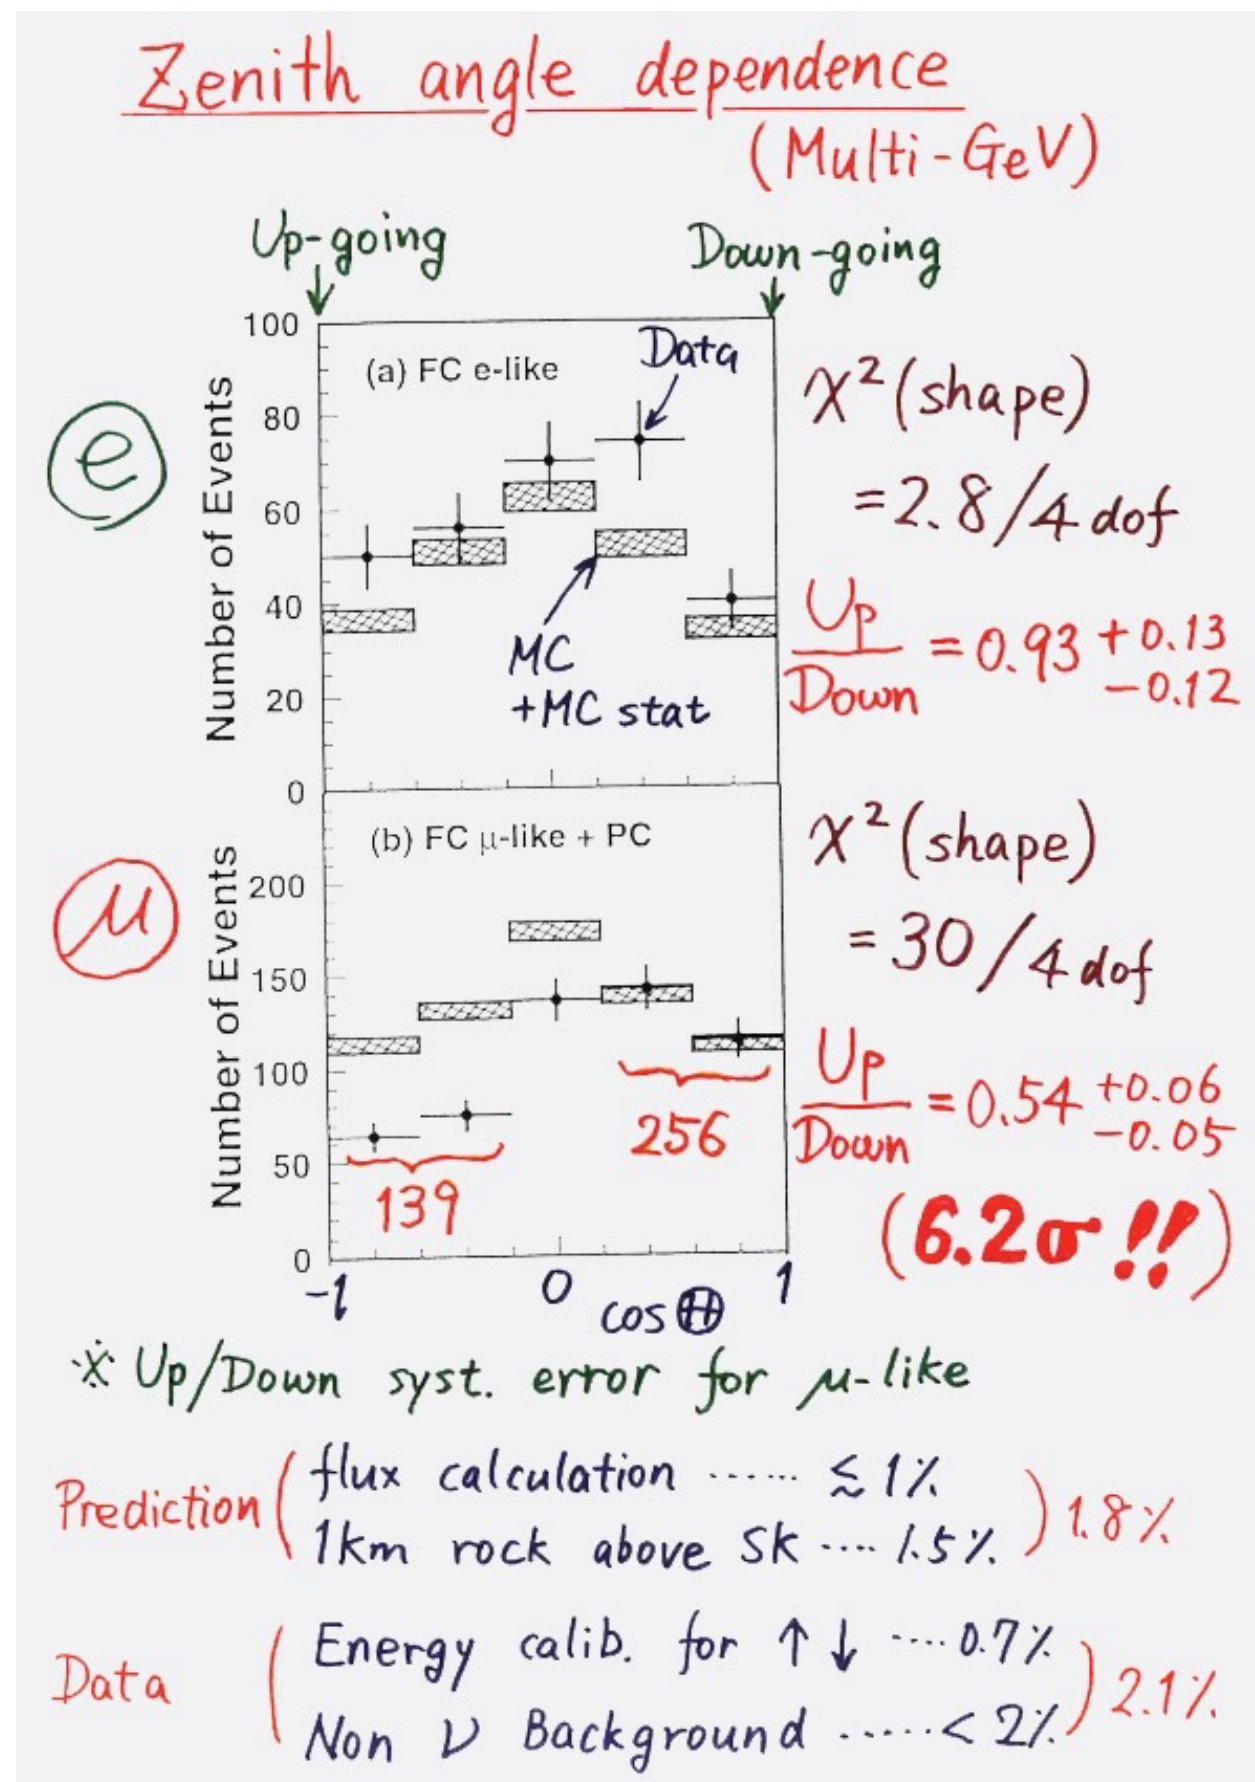 Zenith angle dependence
(Multi-GeV)
Up-going
Down-going
100
80
60
40
20
0
Number of Events
(a) FC e-like
Data
MC
+MC stat
e
χ² (shape)
= 2.8/4 dof
Up/Down = 0.93 +0.13 -0.12
200
150
100
50
0
Number of Events
(b) FC μ-like + PC
μ
139
256
χ² (shape)
= 30/4 dof
Up/Down = 0.54 +0.06 -0.05
(6.2σ!!)
-1 0 1
cos Θ
※ Up/Down syst. error for μ-like
Prediction ( flux calculation ...... ≲ 1%
1km rock above SK .... 1.5% ) 1.8%
Data ( Energy calib. for ↑ ↓ .... 0.7%
Non ν Background ...... < 2% ) 2.1%